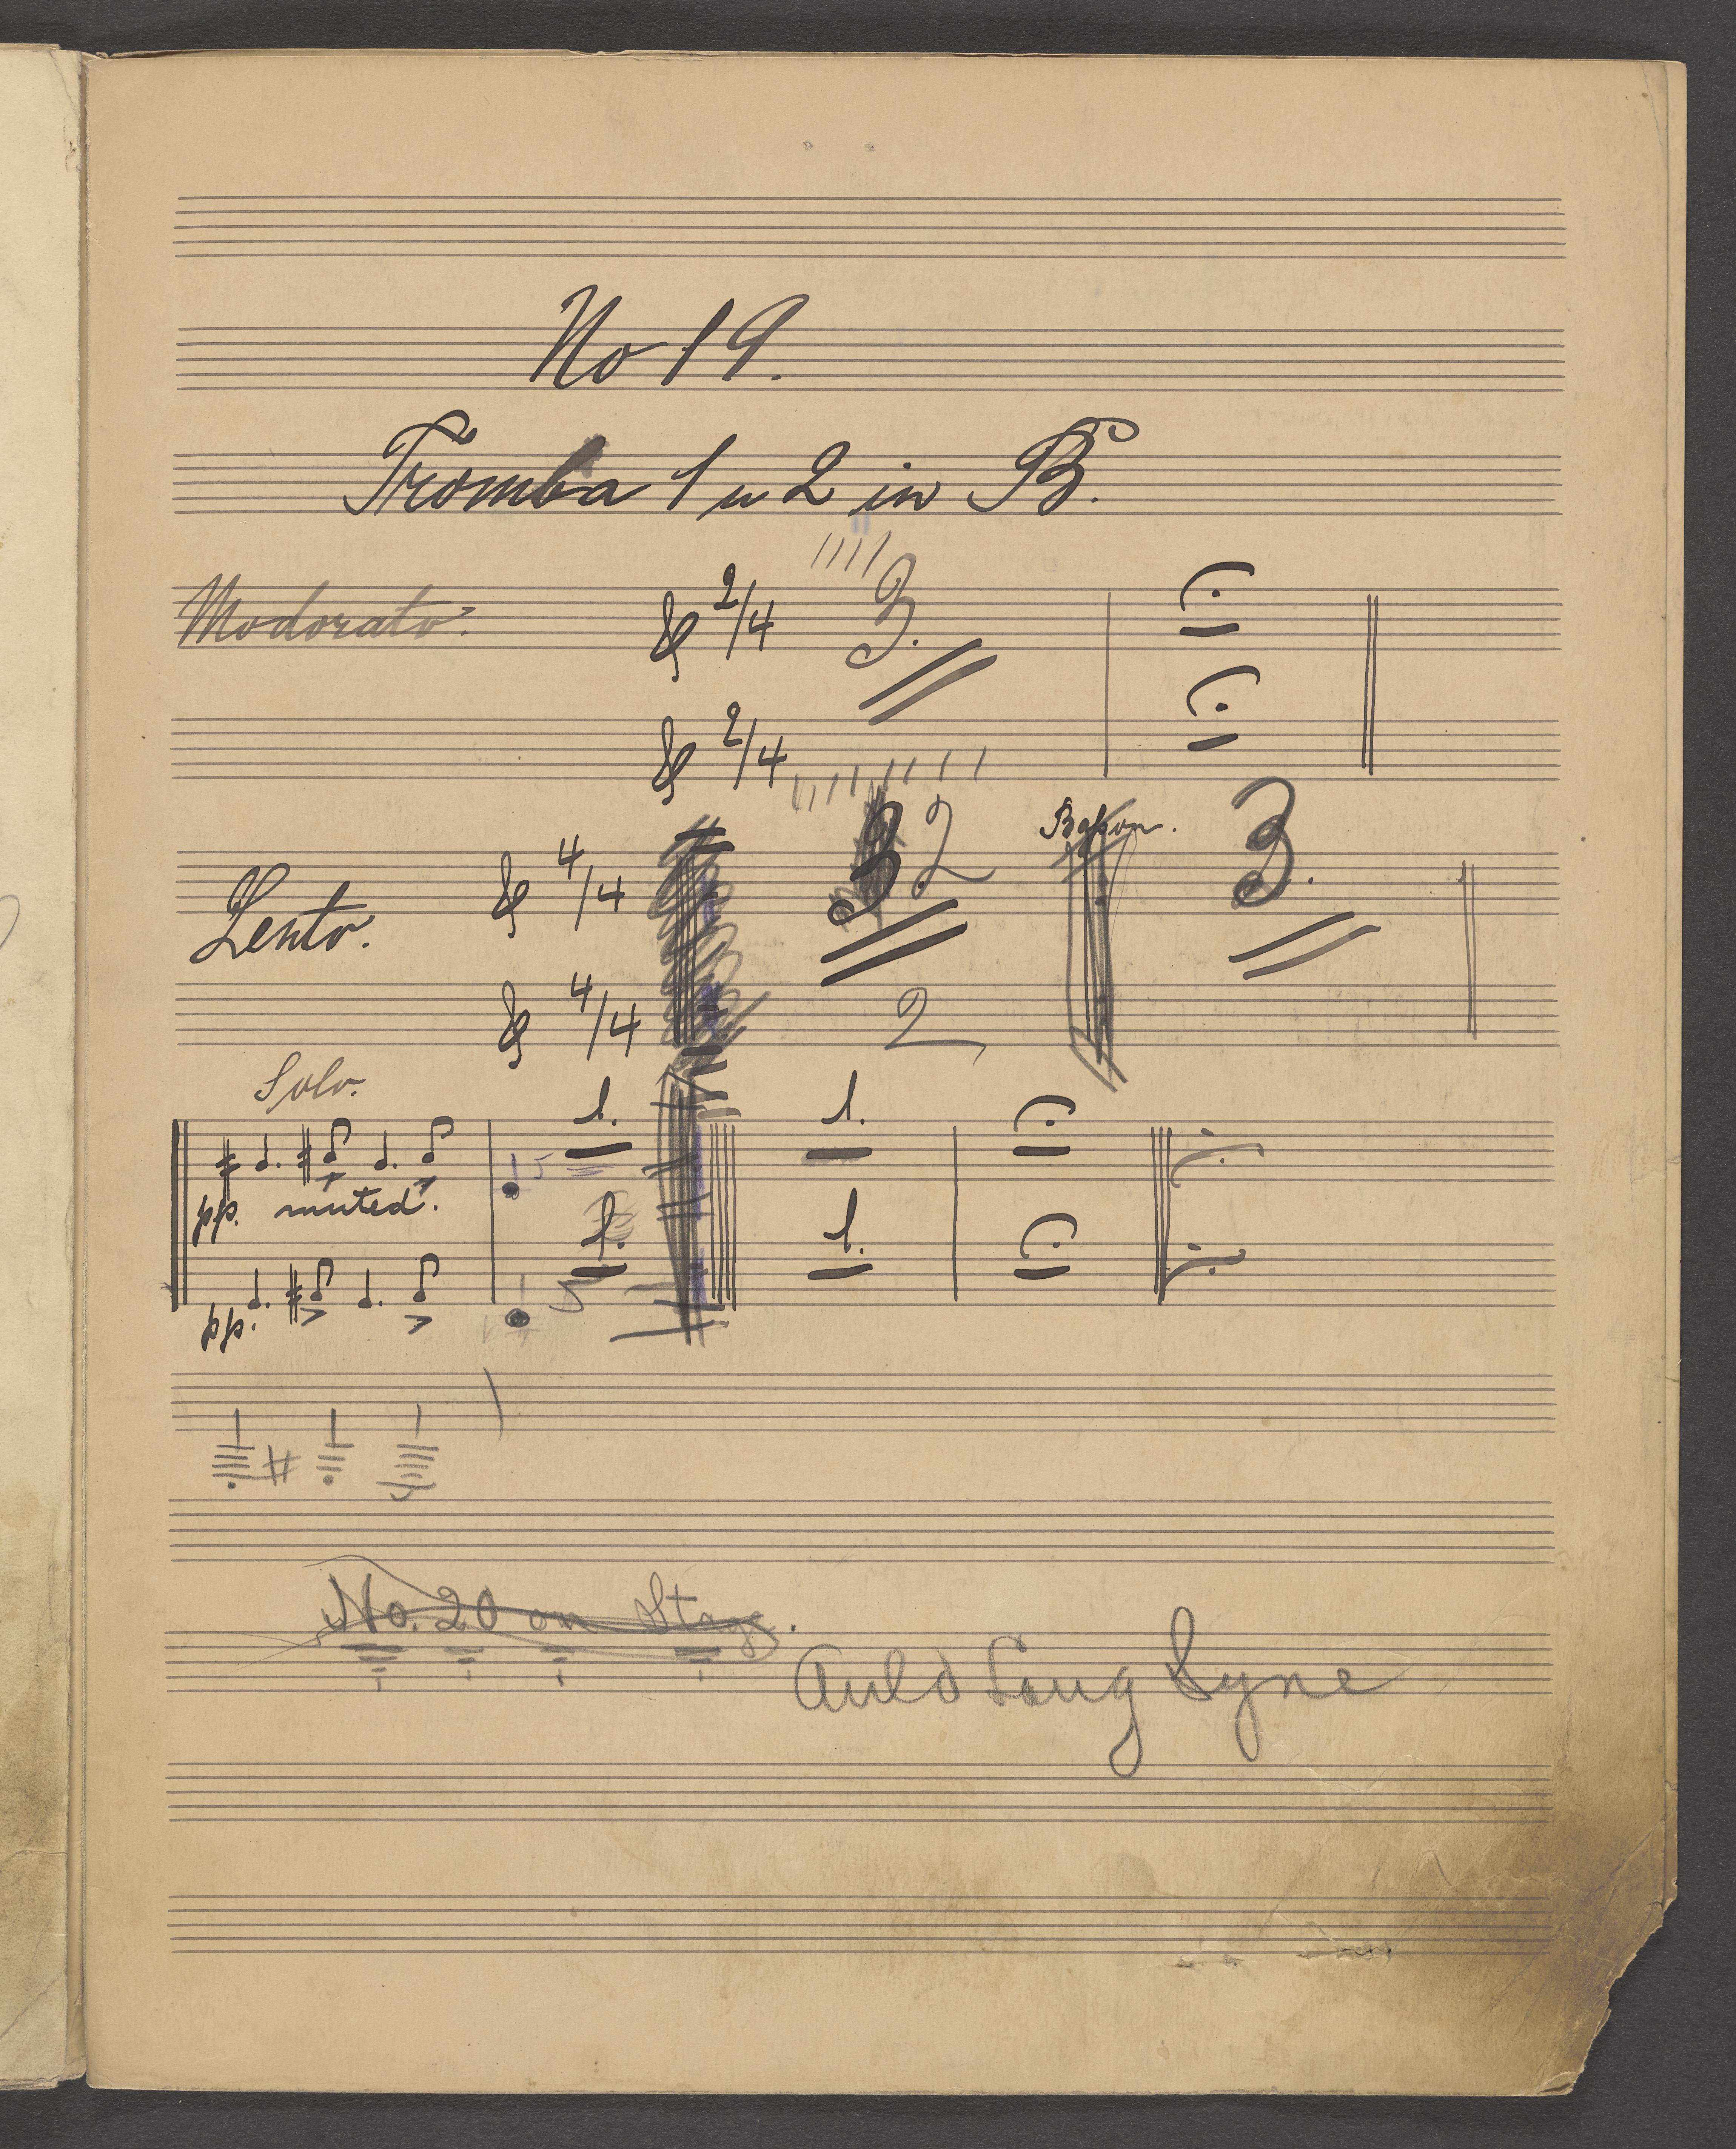 No 19.
Tromba 1 u 2 in B.
Modorato. 2/4 3.
2/4
Lento. 4/4 3 2 3.
4/4 2
Solo.
1. 1.
pp. muted.
1. 1.
pp.
No. 20 on Stage.
Auld Lang Syne